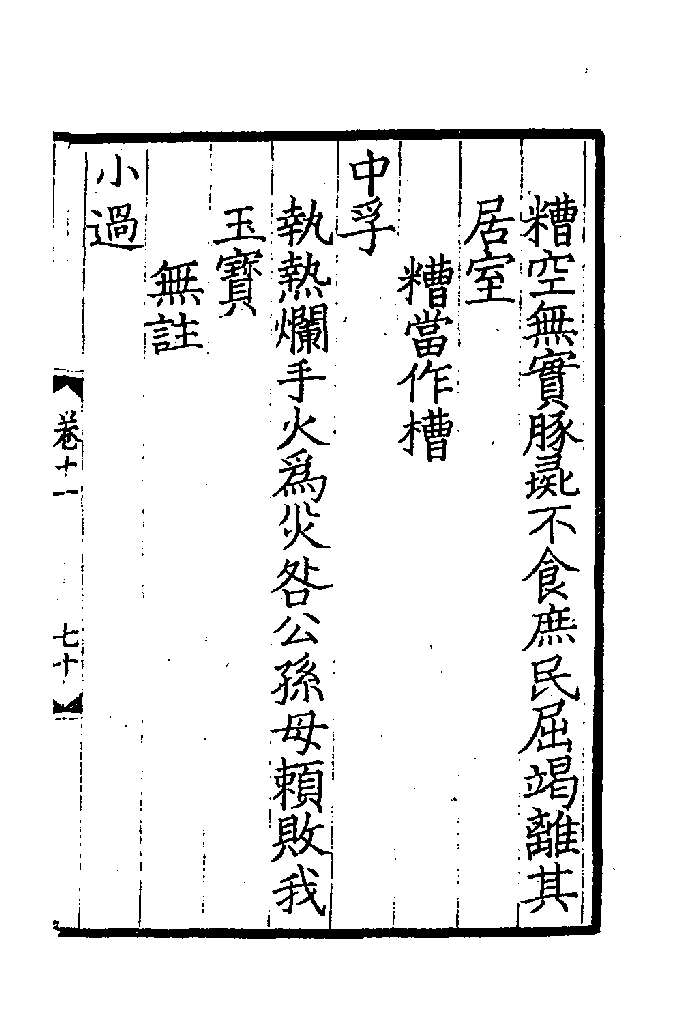 糟空無實豚彘不食庶民屈竭離其
居室
糟當作槽
中孚
執熱爛手火爲災咎公孫母賴敗我
玉寶
無註
小過
卷十一
七十